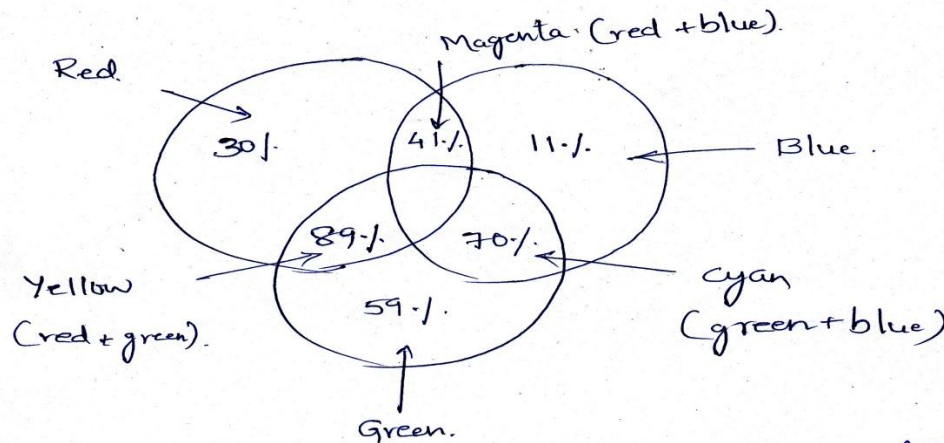 Magenta. (red + blue).
Red.
30%.
41%.
11%.
Blue.
89%.
70%.
Yellow
(red + green).
59%.
cyan
(green + blue)
Green.